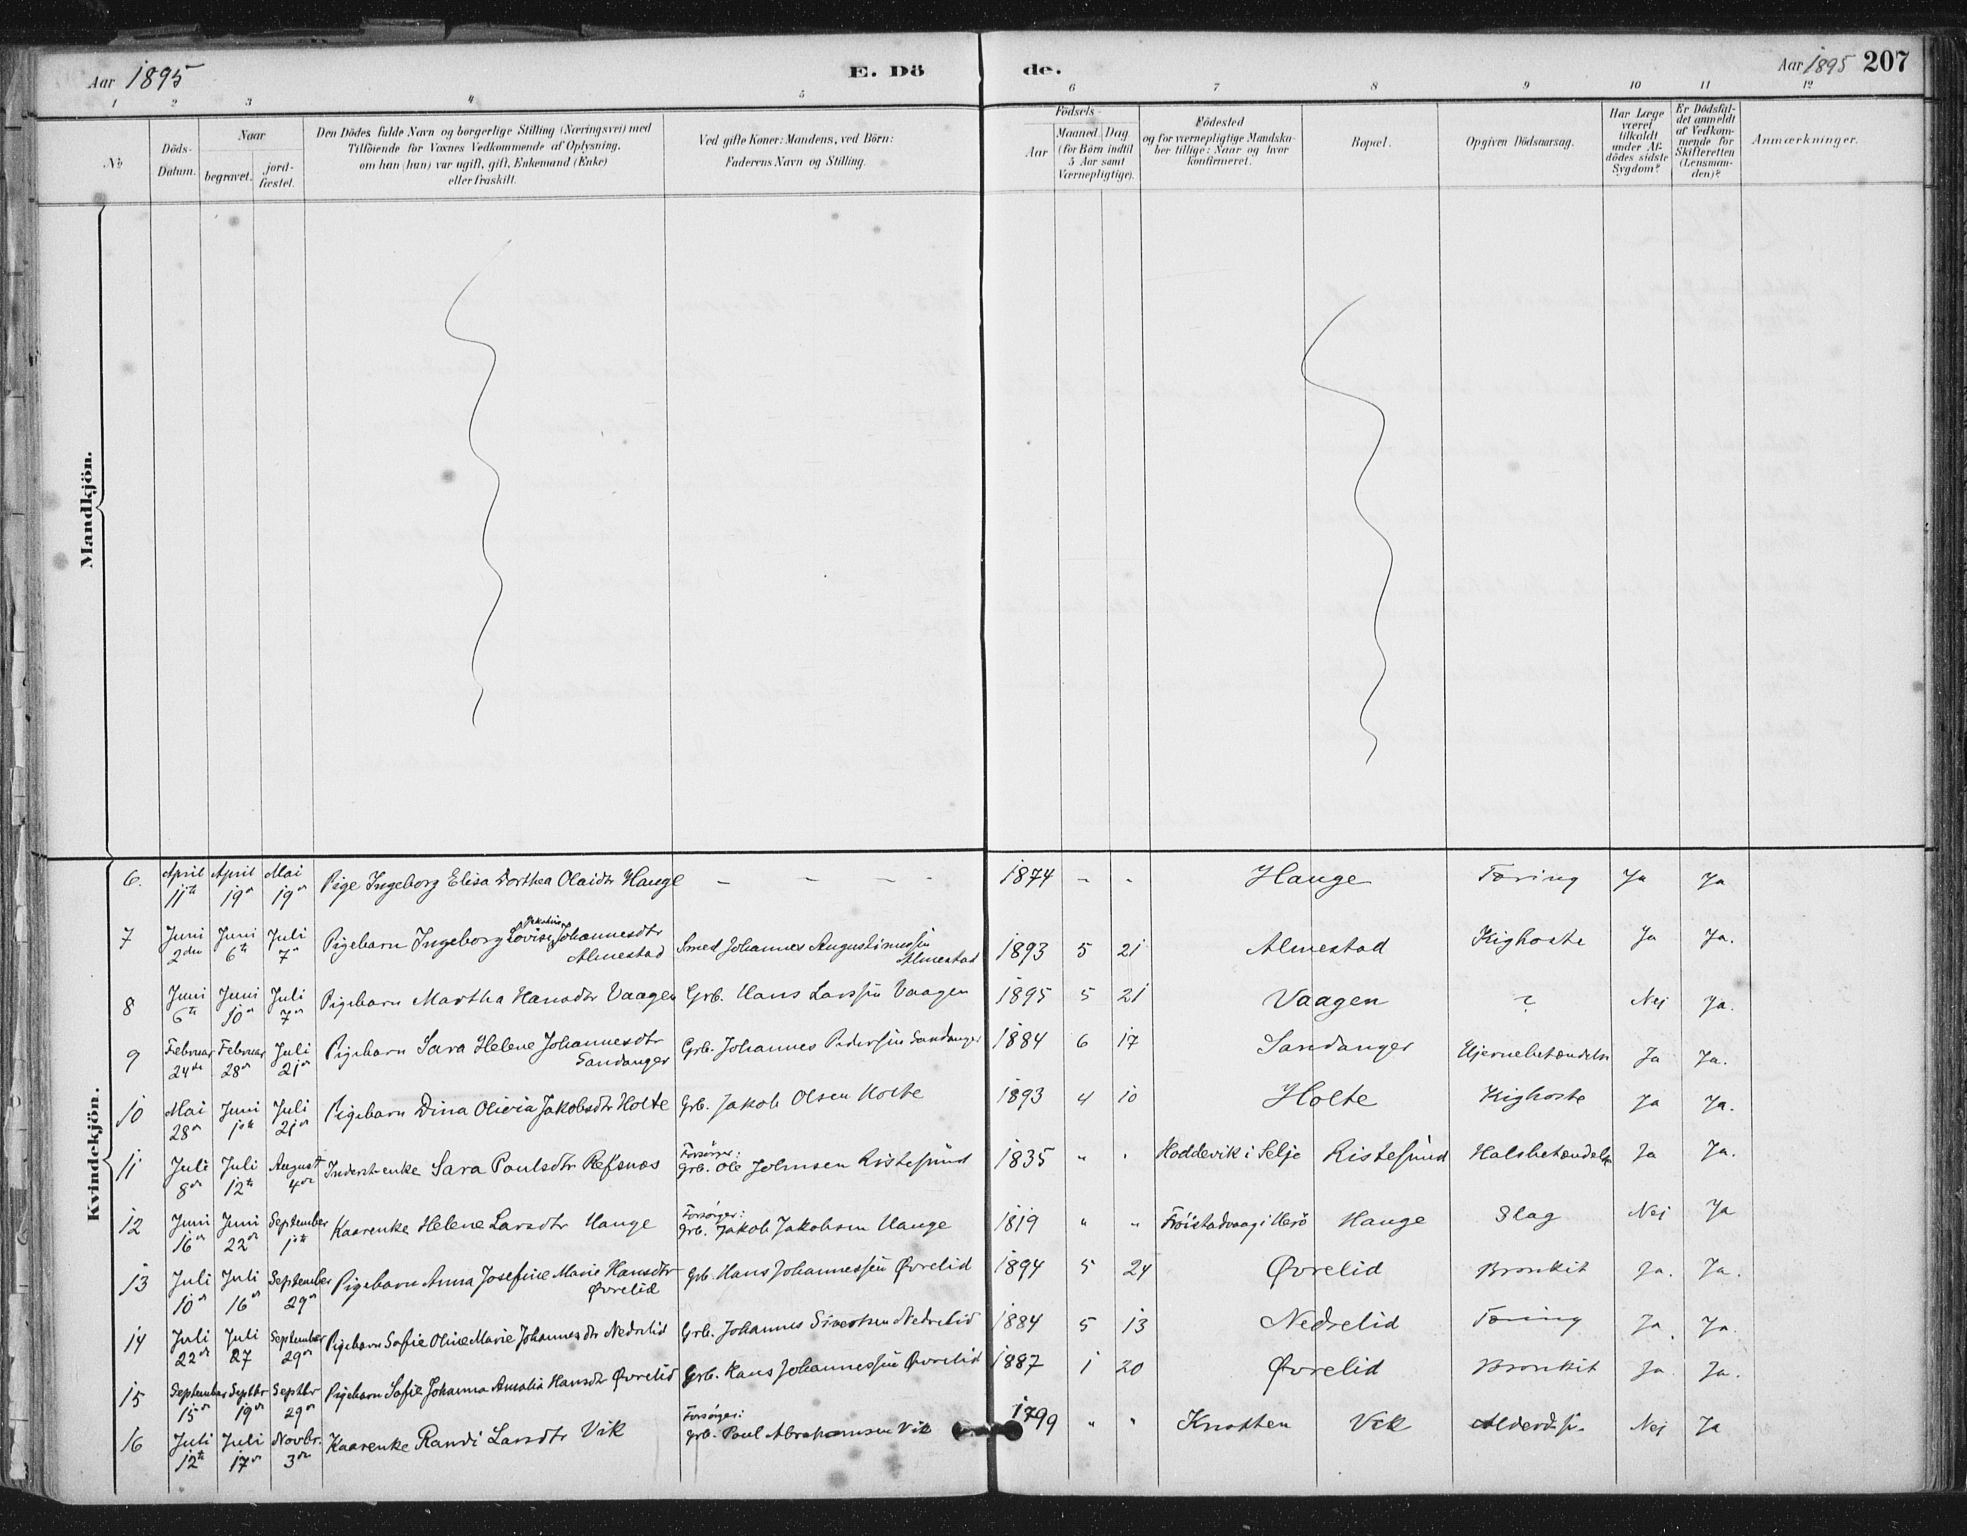 Aar 1895
E. Dö
de.
Aar 1895 207
1 2 3 4 5 6 7 8 9 10 11 12
No.
Döds-Datum.
Naar
begravet.
jord-fæstet.
Den Dödes fulde Navn og borgerlige Stilling (Næringsvei) med
Tilföiende for Voxnes Vedkommende af Oplysning,
om han (hun) var ugift, gift, Enkemand (Enke)
eller fraskilt.
Ved gifte Koner: Mandens, ved Börn:
Faderens Navn og Stilling.
Födsels-
Aar
Maaned Dag
(for Börn indtil
5 Aar samt
Værnepligtige).
Födested
og for værnepligtige Mandska-
ber tillige: Naar og hvor
konfirmeret.
Bopæl.
Opgiven Dödsaarsag.
Har Læge
været
tilkaldt
under Af-
dödes sidste
Sygdom?
Er Dödsfal-
det anmeldt
af Vedkom-
mende for
Skifteretten
(Lensman-
den)?
Anmærkninger.
Mandkjön.
Kvindekjön.
6. April 11te April 19de Mai 19de Pige Ingeborg Elisa Dorthea Olaidtr Hauge - - - - 1874 - - Hauge Tæring Ja Ja
7 Juni 2den Juni 6te Juli 7de Pigebarn Ingeborg Lovise Johannesdtr Almestad Smed Johannes Augustinussen Almestad 1893 5 21 Almestad Kighoste Ja Ja.
8 Juni 6te Juni 10de Juli 7de Pigebarn Martha Hansdtr Vaagen Grb. Hans Larssen Vaagen 1895 5 21 Vaagen ? Nej Ja.
9 Februar 24de Februar 28de Juli 21de Pigebarn Sara Helene Johannesdtr Sandanger Grb. Johannes Pedersen Sandanger 1884 6 17 Sandanger Hjernebetændelse Ja Ja.
10 Mai 28de Juni 1ste Juli 21de Pigebarn Dina Olivia Jakobsdtr Holte Grb. Jakob Olsen Holte 1893 4 10 Holte Kighoste Ja Ja.
11 Juli 8de Juli 12te August 4de Inderstenke Sara Poulsdtr Refsnæs Forsörger: Grb. Ole Johnsen Ristesund 1835 " " Hoddevik i Selje Ristesund Halsbetændelse Ja Ja.
12 Juni 16de Juni 22de September 1ste Kaarenke Helene Larsdtr Hauge Forsörger: Grb. Jakob Jakobsen Hauge 1819 " " Fröistadvaag i Herö Hauge Slag Nej Ja
13 Juli 10de Juli 16de September 29de Pigebarn Anna Josefine Marie Hansdtr Øvrelid Grb. Hans Johannessen Øvrelid 1894 5 24 Øvrelid Bronkit Ja. Ja.
14 Juli 22de Juli 27 September 29de Pigebarn Sofie Oline Marie Johannesdtr Nedrelid Grb. Johannes Sivertsen Nedrelid 1884 5 13 Nedrelid Tæring Ja. Ja.
15 September 15de Septbr 19de Septbr 29de Pigebarn Sofie Johanna Amalia Hansdtr Øvrelid Grb. Hans Johannessen Øvrelid 1887 1 20 Øvrelid Bronkit Ja. Ja.
16 Juli 12te Juli 17de Novbr. 3de Kaarenke Randi Larsdtr Vik Forsörger: Grb. Poul Abrahamsen Vik 1799 " " Knotten Vik Nej Ja